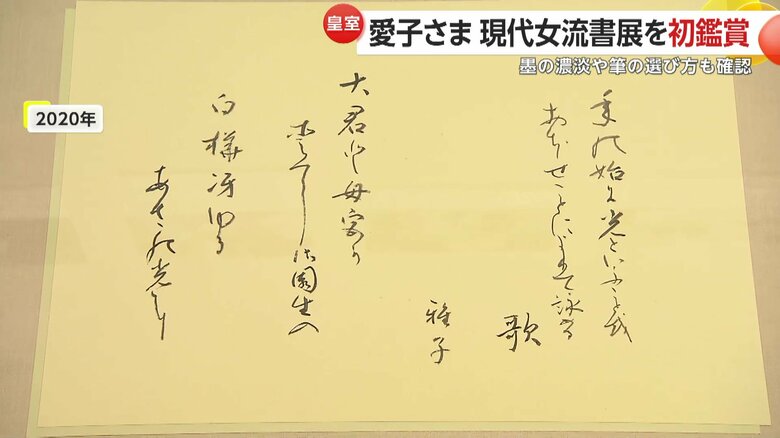 皇室
愛子さま 現代女流書展を初鑑賞
墨の濃淡や筆の選び方も確認
2020年
年の始に光といふことを
おほせことによりて詠める
歌
雅子
大君と母宮の
愛でし御園生の
白樺冴ゆる
あさの光に